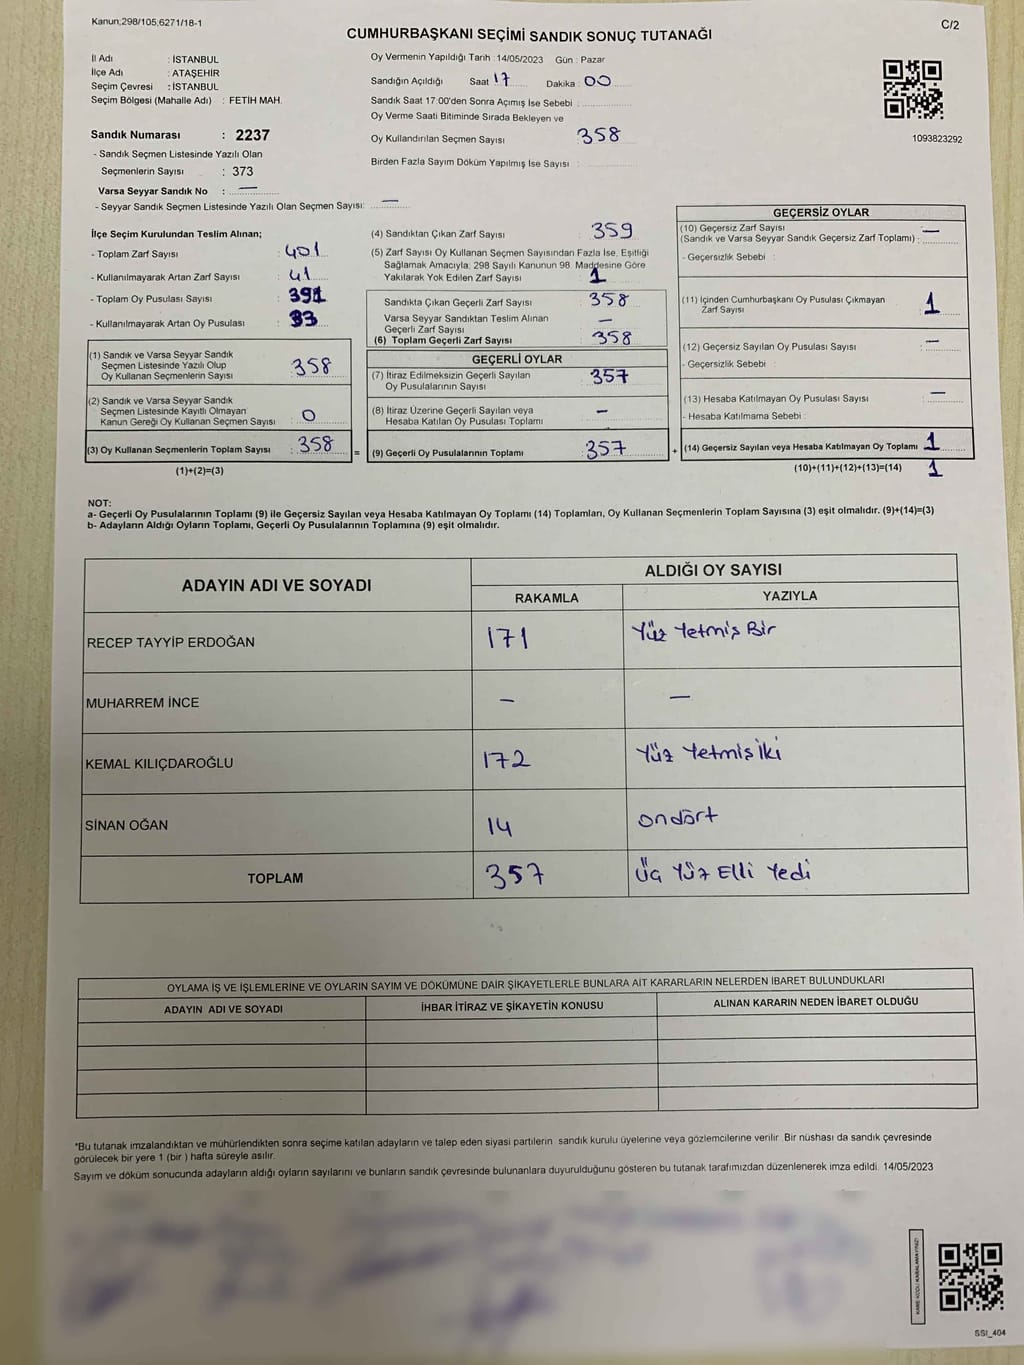 Kanun;298/105;6271/18-1
C/2
CUMHURBAŞKANI SEÇİMİ SANDIK SONUÇ TUTANAĞI
İl Adı : İSTANBUL
İlçe Adı : ATAŞEHİR
Seçim Çevresi : İSTANBUL
Seçim Bölgesi (Mahalle Adı) : FETİH MAH.
Sandık Numarası : 2237
- Sandık Seçmen Listesinde Yazılı Olan
Seçmenlerin Sayısı : 373
Varsa Seyyar Sandık No : —
- Seyyar Sandık Seçmen Listesinde Yazılı Olan Seçmen Sayısı: —
Oy Vermenin Yapıldığı Tarih : 14/05/2023 Gün : Pazar
Sandığın Açıldığı Saat 17 Dakika : 00
Sandık Saat 17:00'den Sonra Açılmış İse Sebebi :
Oy Verme Saati Bitiminde Sırada Bekleyen ve
Oy Kullandırılan Seçmen Sayısı 358
Birden Fazla Sayım Döküm Yapılmış İse Sayısı :
1093823292
İlçe Seçim Kurulundan Teslim Alınan;
- Toplam Zarf Sayısı : 401
- Kullanılmayarak Artan Zarf Sayısı : 41
- Toplam Oy Pusulası Sayısı : 391
- Kullanılmayarak Artan Oy Pusulası : 33
(1) Sandık ve Varsa Seyyar Sandık
Seçmen Listesinde Yazılı Olup
Oy Kullanan Seçmenlerin Sayısı : 358
(2) Sandık ve Varsa Seyyar Sandık
Seçmen Listesinde Kayıtlı Olmayan
Kanun Gereği Oy Kullanan Seçmen Sayısı : 0
(3) Oy Kullanan Seçmenlerin Toplam Sayısı : 358
(1)+(2)=(3)
=
(4) Sandıktan Çıkan Zarf Sayısı : 359
(5) Zarf Sayısı Oy Kullanan Seçmen Sayısından Fazla İse, Eşitliği
Sağlamak Amacıyla; 298 Sayılı Kanunun 98. Maddesine Göre
Yakılarak Yok Edilen Zarf Sayısı : 1
Sandıkta Çıkan Geçerli Zarf Sayısı : 358
Varsa Seyyar Sandıktan Teslim Alınan
Geçerli Zarf Sayısı : —
(6) Toplam Geçerli Zarf Sayısı : 358
GEÇERLİ OYLAR
(7) İtiraz Edilmeksizin Geçerli Sayılan
Oy Pusulalarının Sayısı : 357
(8) İtiraz Üzerine Geçerli Sayılan veya
Hesaba Katılan Oy Pusulası Toplamı : —
(9) Geçerli Oy Pusulalarının Toplamı : 357
+
GEÇERSİZ OYLAR
(10) Geçersiz Zarf Sayısı
(Sandık ve Varsa Seyyar Sandık Geçersiz Zarf Toplamı) : —
- Geçersizlik Sebebi :
(11) İçinden Cumhurbaşkanı Oy Pusulası Çıkmayan
Zarf Sayısı : 1
(12) Geçersiz Sayılan Oy Pusulası Sayısı : —
- Geçersizlik Sebebi :
(13) Hesaba Katılmayan Oy Pusulası Sayısı : —
- Hesaba Katılmama Sebebi :
(14) Geçersiz Sayılan veya Hesaba Katılmayan Oy Toplamı : 1
(10)+(11)+(12)+(13)=(14) 1
NOT:
a- Geçerli Oy Pusulalarının Toplamı (9) ile Geçersiz Sayılan veya Hesaba Katılmayan Oy Toplamı (14) Toplamları, Oy Kullanan Seçmenlerin Toplam Sayısına (3) eşit olmalıdır. (9)+(14)=(3)
b- Adayların Aldığı Oyların Toplamı, Geçerli Oy Pusulalarının Toplamına (9) eşit olmalıdır.
ADAYIN ADI VE SOYADI
ALDIĞI OY SAYISI
RAKAMLA YAZIYLA
RECEP TAYYİP ERDOĞAN 171 Yüz Yetmiş Bir
MUHARREM İNCE — —
KEMAL KILIÇDAROĞLU 172 Yüz Yetmiş İki
SİNAN OĞAN 14 ondört
TOPLAM 357 Üç Yüz Elli Yedi
OYLAMA İŞ VE İŞLEMLERİNE VE OYLARIN SAYIM VE DÖKÜMÜNE DAİR ŞİKAYETLERLE BUNLARA AİT KARARLARIN NELERDEN İBARET BULUNDUKLARI
ADAYIN ADI VE SOYADI İHBAR İTİRAZ VE ŞİKAYETİN KONUSU ALINAN KARARIN NEDEN İBARET OLDUĞU
*Bu tutanak imzalandıktan ve mühürlendikten sonra seçime katılan adayların ve talep eden siyasi partilerin sandık kurulu üyelerine veya gözlemcilerine verilir. Bir nüshası da sandık çevresinde
görülecek bir yere 1 (bir) hafta süreyle asılır.
Sayım ve döküm sonucunda adayların aldığı oyların sayılarını ve bunların sandık çevresinde bulunanlara duyurulduğunu gösteren bu tutanak tarafımızdan düzenlenerek imza edildi. 14/05/2023
KARE KODU KARALAMAYINIZ!
SSI_404